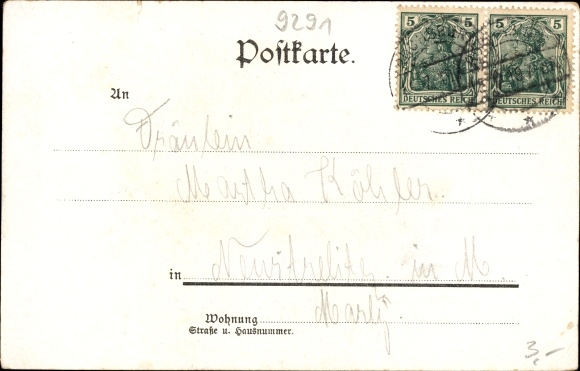 9291
Postkarte.
5 5 5 5
DEUTSCHES REICH DEUTSCHES REICH
An
Fräulein
Martha Köhler.
in Neustrelitz in M.
Wohnung
Straße u. Hausnummer.
3,-